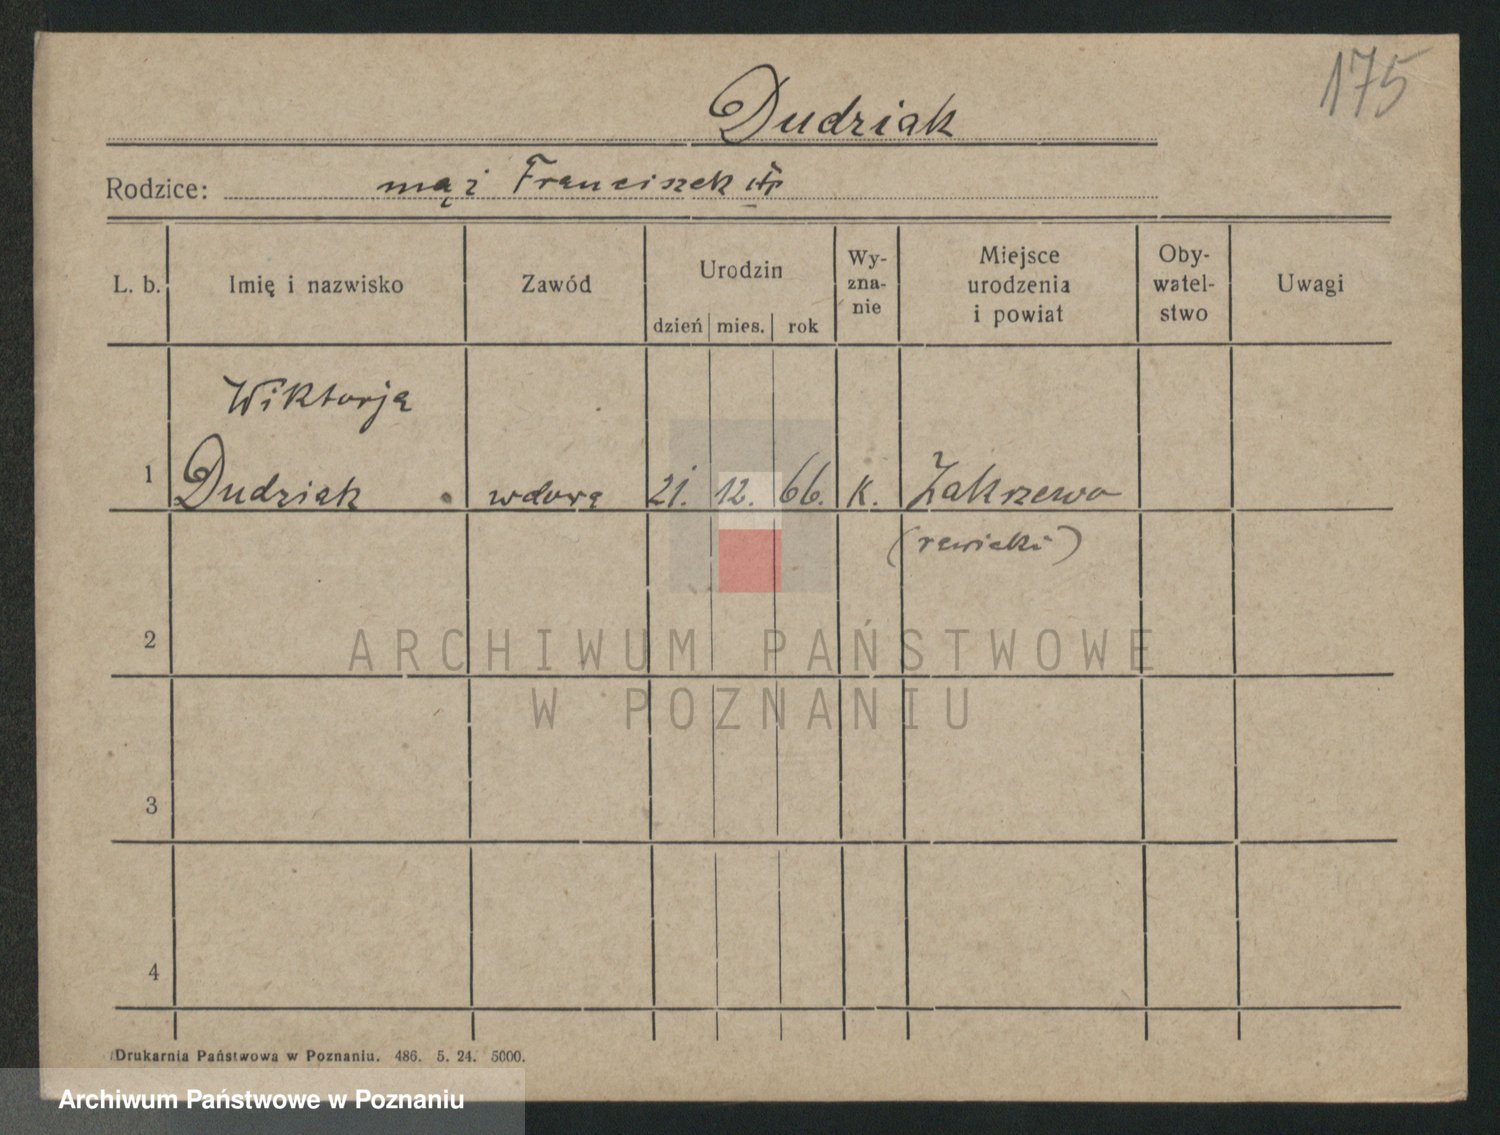 175
Dudziak
Rodzice: mąż Franciszek
L. b. Imię i nazwisko Zawód Urodzin dzień mies. rok Wy-zna-nie Miejsce urodzenia i powiat Oby-watel-stwo Uwagi
Wiktorja
1 Dudziak wdowa 21. 12. 66. K. Zakrzewo
(rawicki)
2
ARCHIWUM PAŃSTWOWE
W POZNANIU
3
4
Drukarnia Państwowa w Poznaniu. 486. 5. 24. 5000.
Archiwum Państwowe w Poznaniu